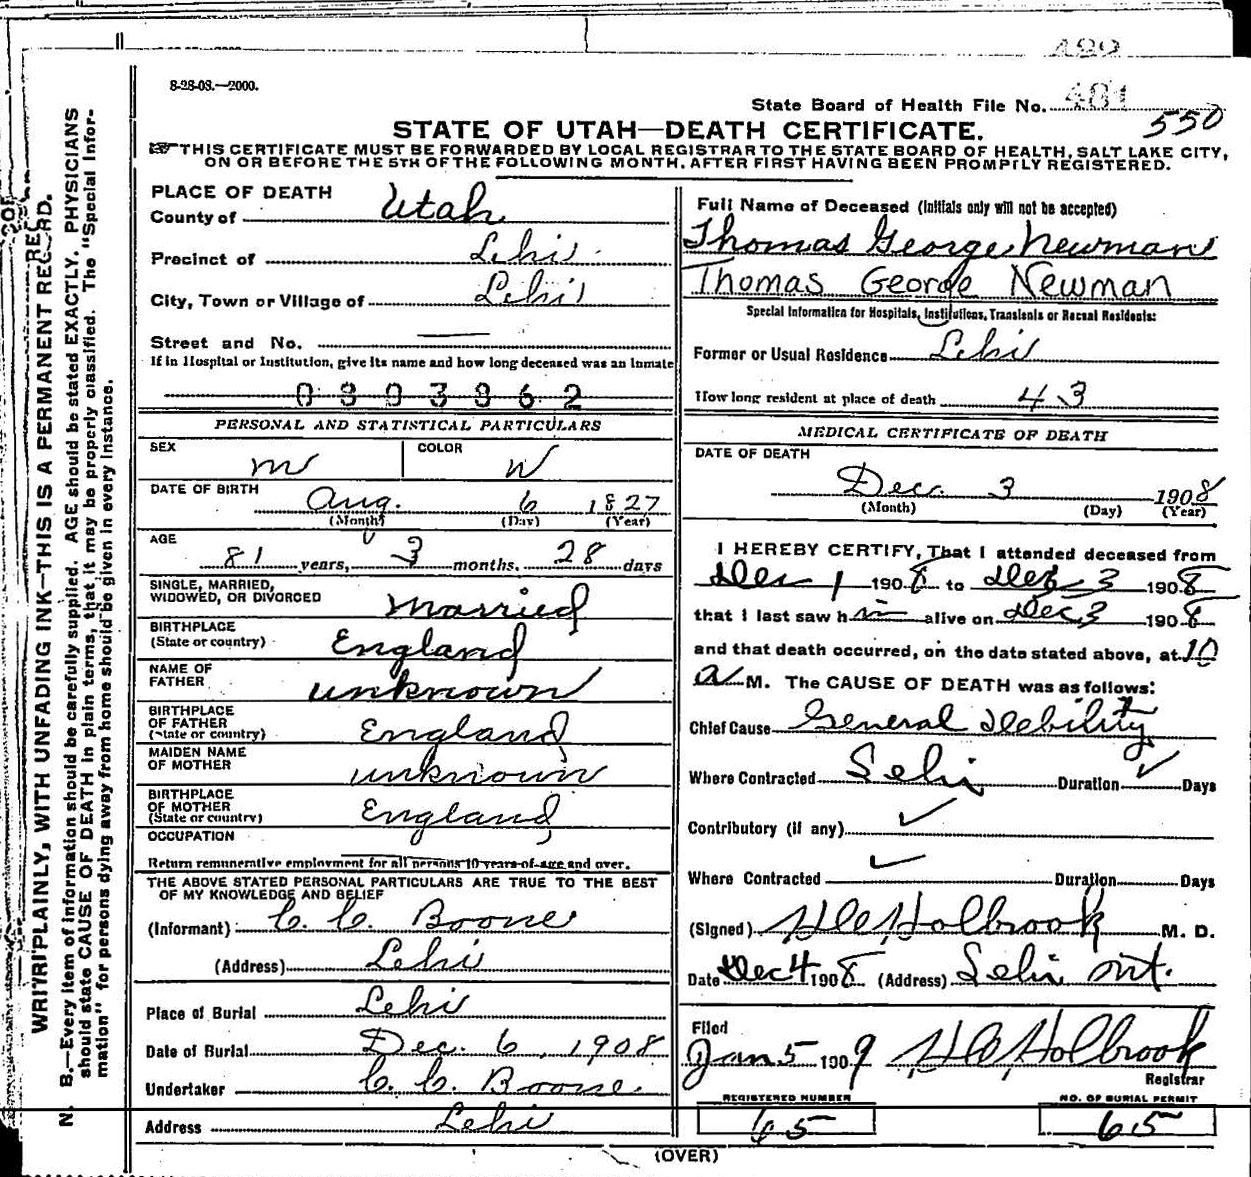 8-28-08.—2000.
State Board of Health File No. 481
550
STATE OF UTAH—DEATH CERTIFICATE.
THIS CERTIFICATE MUST BE FORWARDED BY LOCAL REGISTRAR TO THE STATE BOARD OF HEALTH, SALT LAKE CITY,
ON OR BEFORE THE 5TH OF THE FOLLOWING MONTH, AFTER FIRST HAVING BEEN PROMPTLY REGISTERED.
WRITE PLAINLY, WITH UNFADING INK—THIS IS A PERMANENT RECORD.
N. B.—Every item of information should be carefully supplied. AGE should be stated EXACTLY. PHYSICIANS
should state CAUSE OF DEATH in plain terms, that it may be properly classified. The "Special Infor-
mation" for persons dying away from home should be given in every instance.
PLACE OF DEATH
County of Utah
Precinct of Lehi
City, Town or Village of Lehi
Street and No. —
If in Hospital or Institution, give its name and how long deceased was an inmate
PERSONAL AND STATISTICAL PARTICULARS
SEX m COLOR W
DATE OF BIRTH Aug. 6 1827
(Month) (Day) (Year)
AGE
81 years, 3 months. 28 days
SINGLE, MARRIED,
WIDOWED, OR DIVORCED Married
BIRTHPLACE
(State or country) England
NAME OF
FATHER unknown
BIRTHPLACE
OF FATHER
(State or country) England
MAIDEN NAME
OF MOTHER unknown
BIRTHPLACE
OF MOTHER
(State or country) England
OCCUPATION
Return remunerative employment for all persons 10 years of age and over.
THE ABOVE STATED PERSONAL PARTICULARS ARE TRUE TO THE BEST
OF MY KNOWLEDGE AND BELIEF
(Informant) C. C. Boone
(Address) Lehi
Place of Burial Lehi
Date of Burial Dec. 6, 1908
Undertaker C. C. Boone
Address Lehi
Full Name of Deceased (Initials only will not be accepted)
Thomas George Newman
Thomas George Newman
Special Information for Hospitals, Institutions, Transients or Recent Residents:
Former or Usual Residence Lehi
How long resident at place of death 43
MEDICAL CERTIFICATE OF DEATH
DATE OF DEATH
Dec. 3 1908
(Month) (Day) (Year)
I HEREBY CERTIFY, That I attended deceased from
Dec 1 1908 to Dec 3 1908
that I last saw him alive on Dec 3 1908
and that death occurred, on the date stated above, at 10
a M. The CAUSE OF DEATH was as follows:
Chief Cause General Debility
Where Contracted Lehi Duration ✓ Days
Contributory (if any) ✓
Where Contracted ✓ Duration Days
(Signed) Holbrook M. D.
Date Dec 4 1908 (Address) Lehi
Filed
Jan 5 1909 Holbrook
Registrar
REGISTERED NUMBER
65
NO. OF BURIAL PERMIT
65
(OVER)